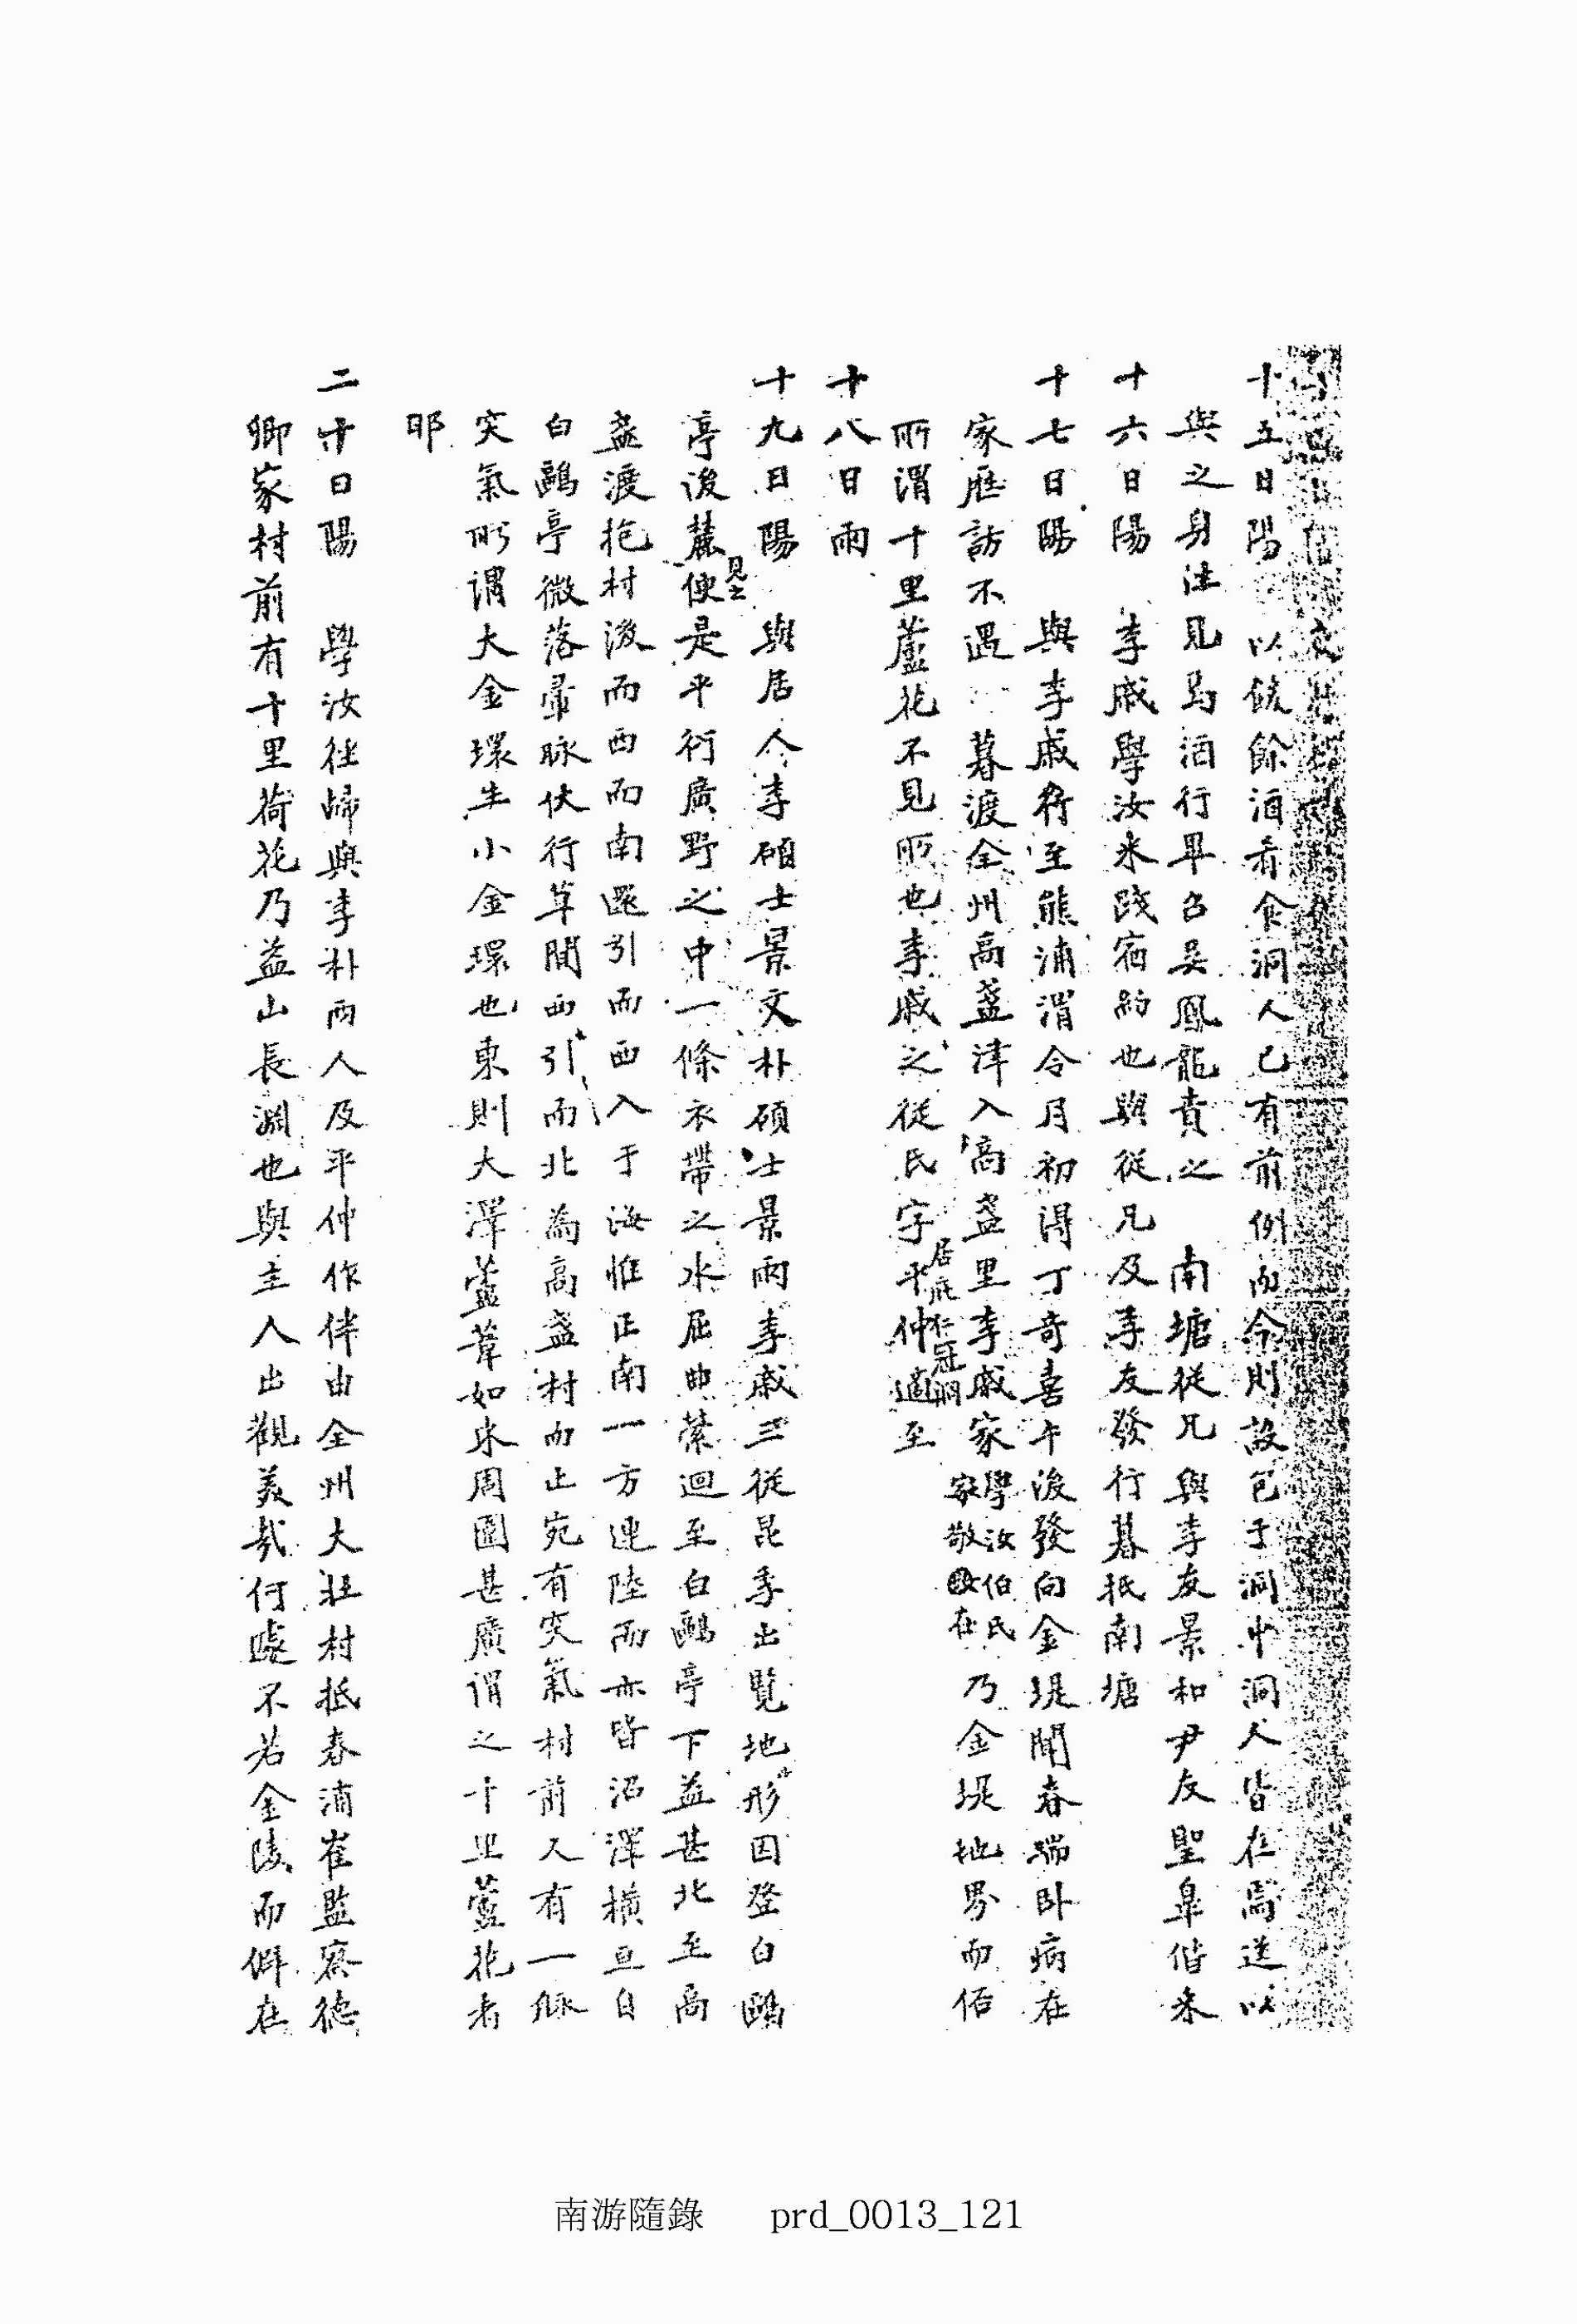 十五日陽 以餕餘酒肴食洞人已有前例而今則設包于洞中洞人皆在焉送以
與之身往見局酒行畢召吳鳳龍責之 南塘從兄與李友景和尹友聖臯偕來
十六日陽 李戚學汝來踐宿約也與從兄及李友發行暮抵南塘
十七日陽 與李戚行至熊浦渭令月初得丁奇喜午後發向金堤聞春端卧病在
家歷訪不遇 暮渡全州高盞津入高盞里李戚家學汝伯氏家敬汝在乃金堤地界而俗
所謂十里蘆花不見所也李戚之從氏字平仲居庇仁冠洞適至
十八日雨
十九日陽 與居人李碩士景文朴碩士景兩李戚三從昆季出覽地形因登白鷗
亭後麓見之便是平衍廣野之中一條衣帶之水屈曲縈迴至白鷗亭下益甚北至高
盞渡抱村後而西而南還引而西入于海惟正南一方連陸而亦皆沼澤橫亘自
白鷗亭微落帚脉伏行草間西引而北為高盞村而止宛有突氣村前又有一脉
突氣所謂大金環生小金環也東則大澤蘆葦如束周圍甚廣謂之十里蘆花者
耶
二十日陽 學汝徃歸與李朴兩人及平仲作伴由全州大壯村抵春浦崔監察德
卿家村前有十里荷花乃益山長淵也與主人出觀美哉何處不若金陵而僻在